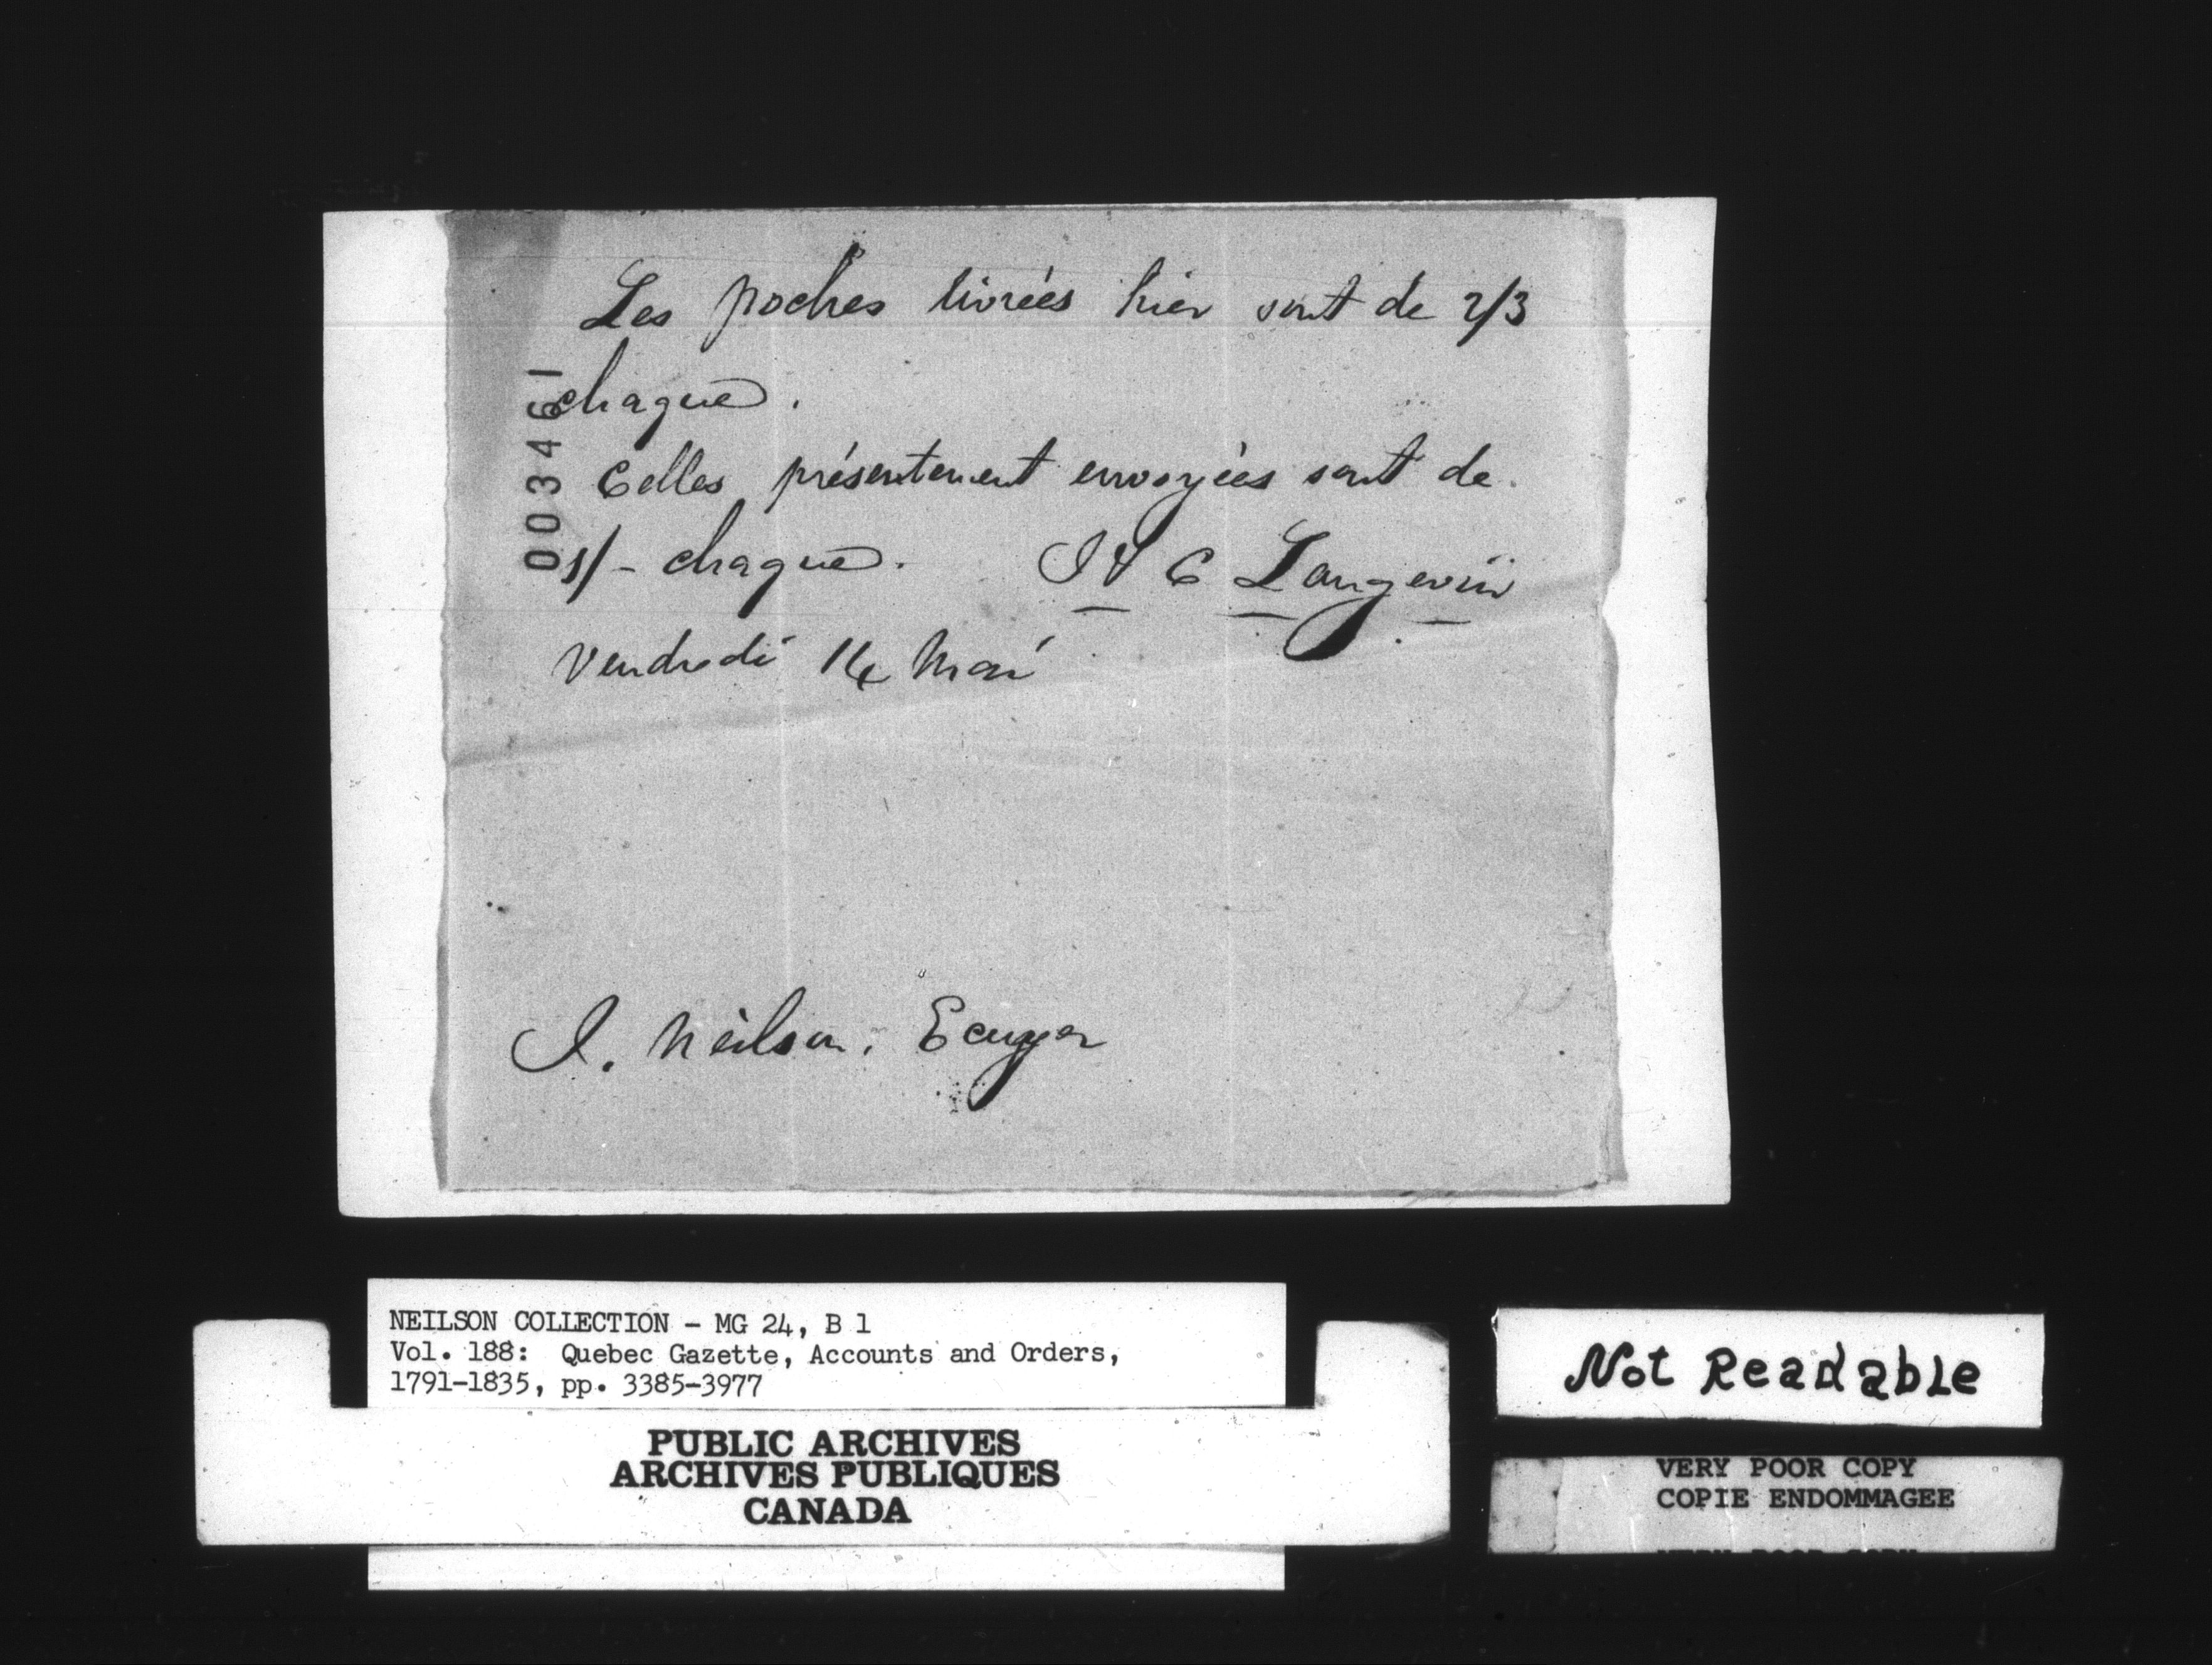 Les poches livrées hier sont de 2/3
chaque.
Celles présentement envoyées sont de
s/- chaque. H C Langevin
Vendredi 14 Mai
J. Neilson, Ecuyer
003461
NEILSON COLLECTION - MG 24, B 1
Vol. 188: Quebec Gazette, Accounts and Orders,
1791-1835, pp. 3385-3977
PUBLIC ARCHIVES
ARCHIVES PUBLIQUES
CANADA
Not Readable
VERY POOR COPY
COPIE ENDOMMAGEE
VERY POOR COPY